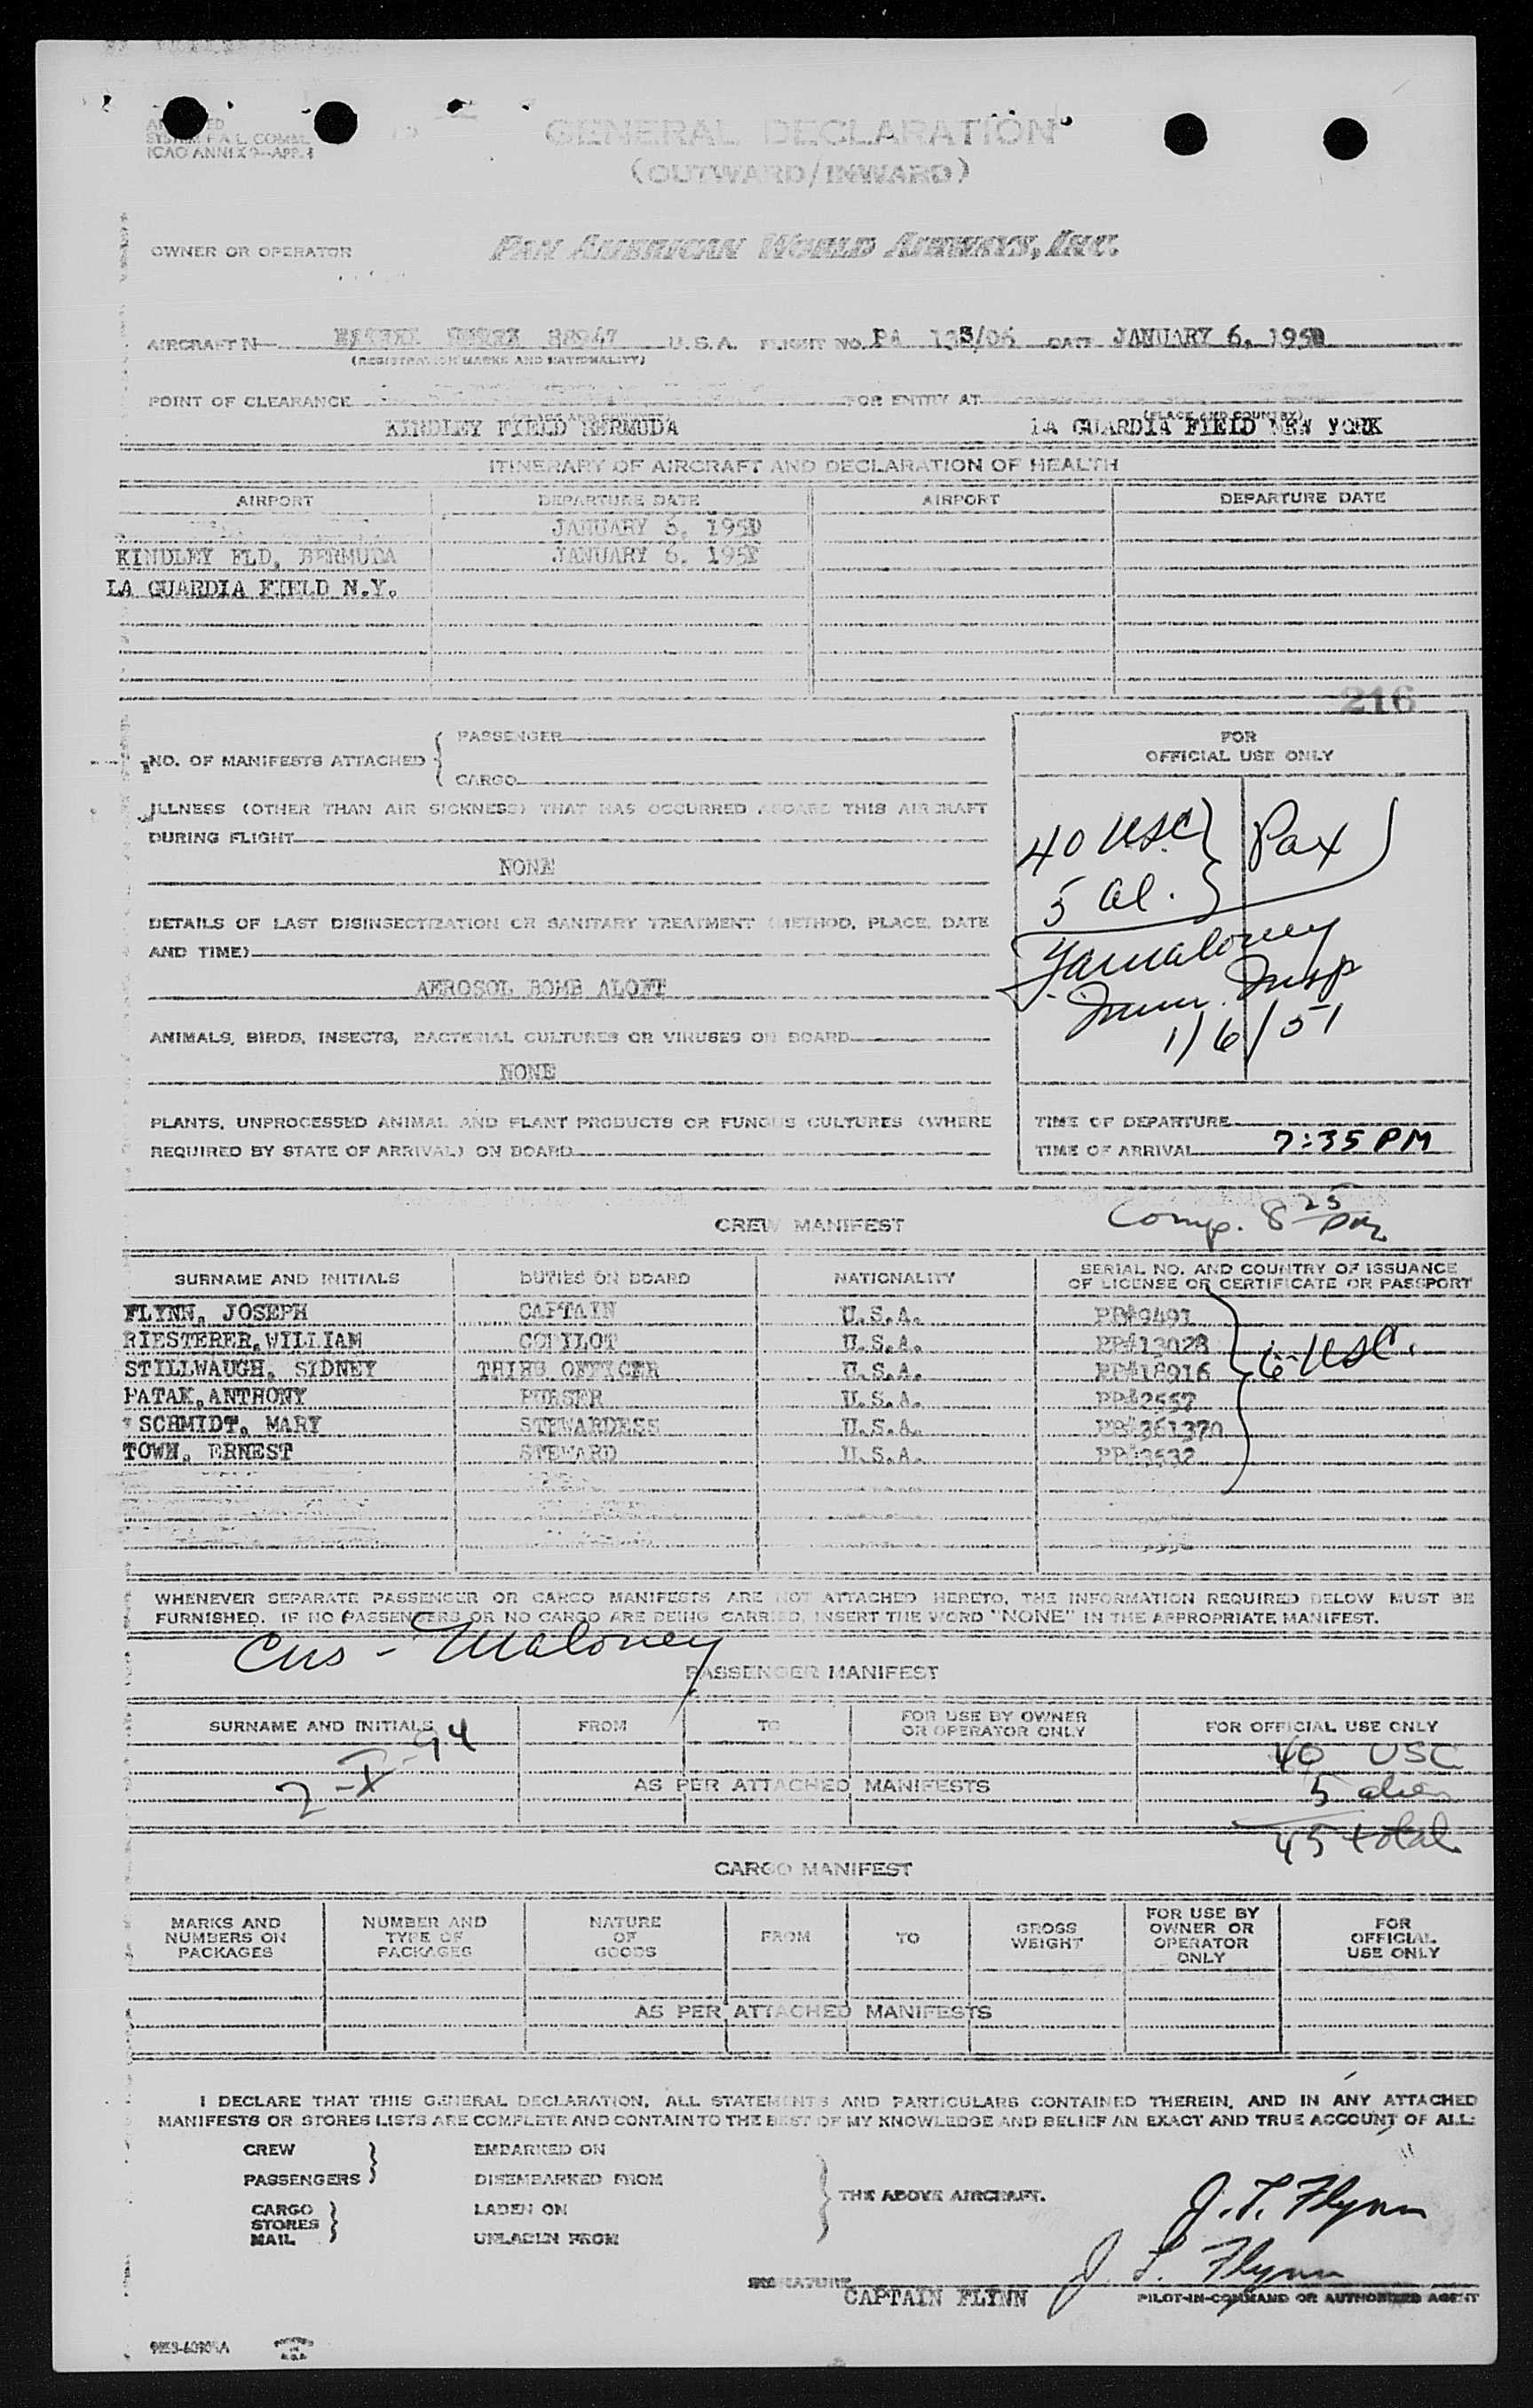 GENERAL DECLARATION
(OUTWARD/INWARD)
ICAO ANNEX 9—APR.
OWNER OR OPERATOR PAN AMERICAN WORLD AIRWAYS, INC.
AIRCRAFT N 88947 U.S.A. FLIGHT NO. PA 133/06 DATE JANUARY 6, 195
(REGISTRATION MARKS AND NATIONALITY)
POINT OF CLEARANCE FOR ENTRY AT
(PLACE AND COUNTRY) (PLACE AND COUNTRY)
KINDLEY FIELD BERMUDA LA GUARDIA FIELD NEW YORK
ITINERARY OF AIRCRAFT AND DECLARATION OF HEALTH
AIRPORT DEPARTURE DATE AIRPORT DEPARTURE DATE
JANUARY 6, 195
KINDLEY FLD, BERMUDA JANUARY 6, 195
LA GUARDIA FIELD N.Y.
216
NO. OF MANIFESTS ATTACHED { PASSENGER
CARGO
FOR
OFFICIAL USE ONLY
ILLNESS (OTHER THAN AIR SICKNESS) THAT HAS OCCURRED ABOARD THIS AIRCRAFT
DURING FLIGHT
NONE
40 USC } Pax )
5 al.
DETAILS OF LAST DISINSECTIZATION OR SANITARY TREATMENT (METHOD, PLACE, DATE
AND TIME)
AEROSOL BOMB ALOFT
Maloney
Imm. Insp
1/6/51
ANIMALS, BIRDS, INSECTS, BACTERIAL CULTURES OR VIRUSES ON BOARD
NONE
PLANTS, UNPROCESSED ANIMAL AND PLANT PRODUCTS OR FUNGUS CULTURES (WHERE
REQUIRED BY STATE OF ARRIVAL) ON BOARD
TIME OF DEPARTURE
TIME OF ARRIVAL 7:35 PM
Comp. 8 25 pm
CREW MANIFEST
SURNAME AND INITIALS DUTIES ON BOARD NATIONALITY SERIAL NO. AND COUNTRY OF ISSUANCE
OF LICENSE OR CERTIFICATE OR PASSPORT
FLYNN, JOSEPH CAPTAIN U.S.A. PP#9491
RIESTERER, WILLIAM COPILOT U.S.A. PP#13028
STILLWAUGH, SIDNEY THIRD OFFICER U.S.A. PP#18916
PATAK, ANTHONY PURSER U.S.A. PP#2557
SCHMIDT, MARY STEWARDESS U.S.A. PP#361370
TOWN, ERNEST STEWARD U.S.A. PP#3532
6-USC.
WHENEVER SEPARATE PASSENGER OR CARGO MANIFESTS ARE NOT ATTACHED HERETO, THE INFORMATION REQUIRED BELOW MUST BE
FURNISHED. IF NO PASSENGERS OR NO CARGO ARE BEING CARRIED, INSERT THE WORD "NONE" IN THE APPROPRIATE MANIFEST.
Cus - Maloney
PASSENGER MANIFEST
SURNAME AND INITIALS FROM TO FOR USE BY OWNER
OR OPERATOR ONLY FOR OFFICIAL USE ONLY
2-I-94
40 USC
AS PER ATTACHED MANIFESTS
5 alien
45 total
CARGO MANIFEST
MARKS AND
NUMBERS ON
PACKAGES
NUMBER AND
TYPE OF
PACKAGES
NATURE
OF
GOODS
FROM
TO
GROSS
WEIGHT
FOR USE BY
OWNER OR
OPERATOR
ONLY
FOR
OFFICIAL
USE ONLY
AS PER ATTACHED MANIFESTS
I DECLARE THAT THIS GENERAL DECLARATION, ALL STATEMENTS AND PARTICULARS CONTAINED THEREIN, AND IN ANY ATTACHED
MANIFESTS OR STORES LISTS ARE COMPLETE AND CONTAIN TO THE BEST OF MY KNOWLEDGE AND BELIEF AN EXACT AND TRUE ACCOUNT OF ALL:
CREW EMBARKED ON
PASSENGERS DISEMBARKED FROM
THE ABOVE AIRCRAFT.
CARGO LADEN ON
STORES
MAIL UNLADEN FROM
J. L. Flynn
J. L. Flynn
SIGNATURE
CAPTAIN FLYNN PILOT-IN-COMMAND OR AUTHORIZED AGENT